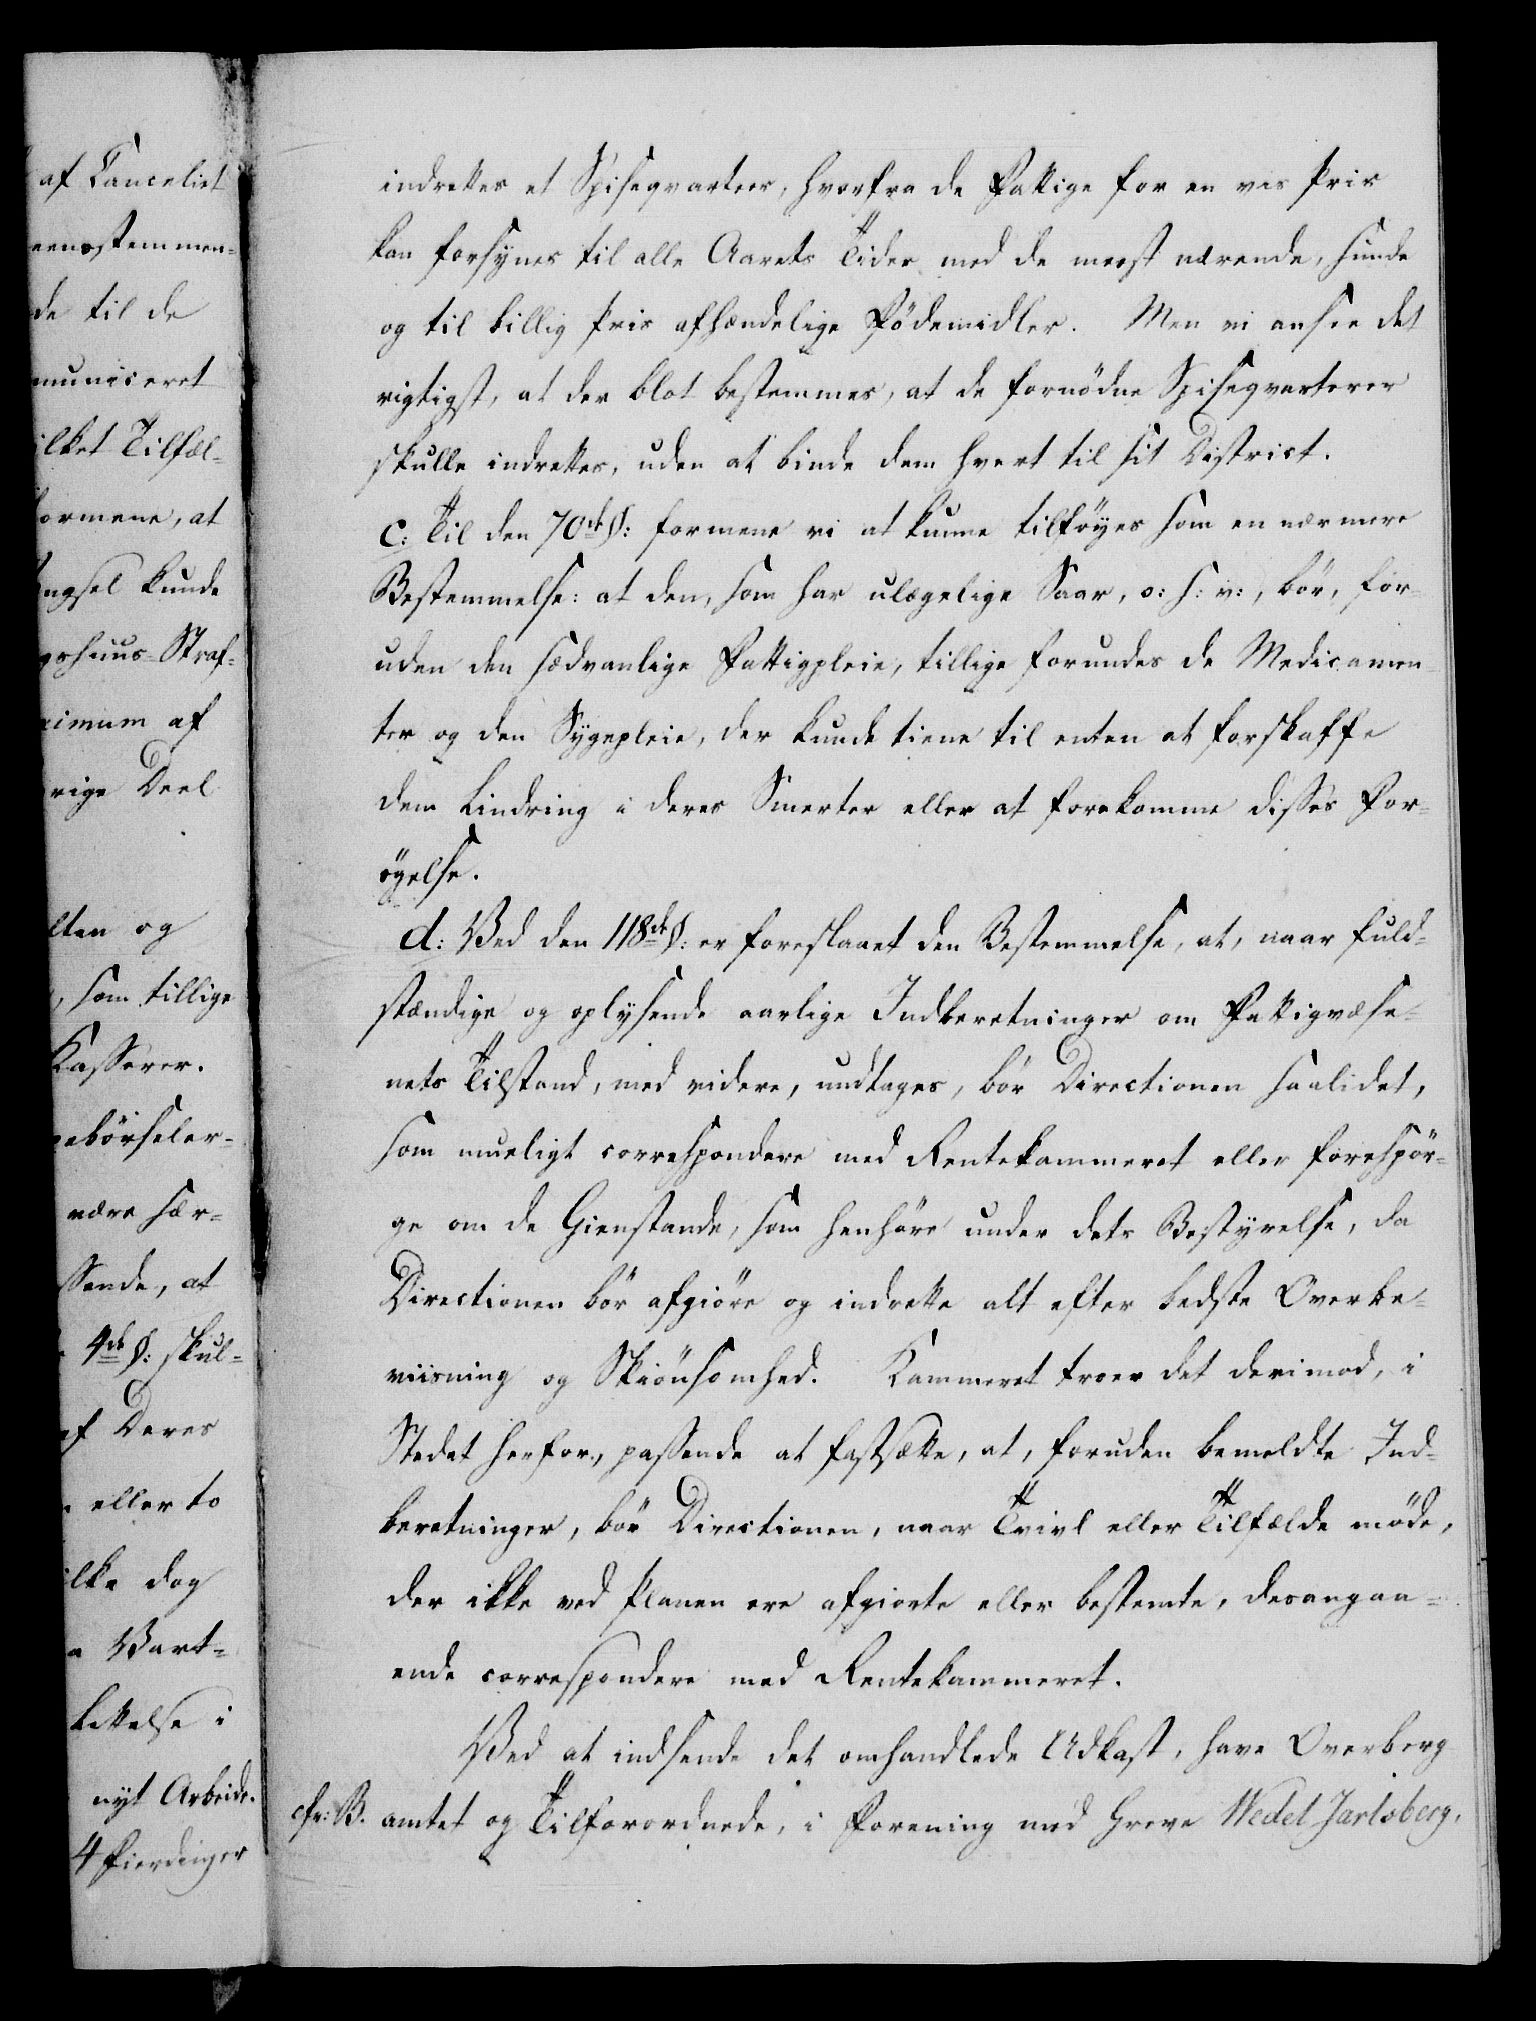 af Canceliet
eensstemmen-
de til de
municeret
ilket Tilfæl-
formene, at
ngsel kunde
gshuus-Straf-
ximum af
rige Deel
lten og
, som tillige
Kasserer.
gebörseler-
være sær-
ssende, at
4de §: skul-
af Deres
eller to
ilke dog
a Vart-
kelse i
nyt Arbeide.
4 Fierdinger
indrettes et Spiseqvarteer, hvorfra de Fattige for en vis Priis
kan forsynes til alle Aarets Tider med de meest nærende, sunde
og til billig Priis afhændelige Födemidler. Men vi ansee det
rigtigst, at der blot bestemmes, at de fornödne Spiseqvarterer
skulle indrettes, uden at binde dem hvert til sit District.
c: Til den 70de §: formene vi at kunne tilföyes som en nærmere
Bestemmelse: at den, som har ulægelige Saar, o: s: v:, bör, for-
uden den sædvanlige Fattigpleie, tillige forundes de Medicamen-
ter og den Sygepleie, der kunde tiene til enten at forskaffe
dem Lindring i deres Smerter eller at forekomme disses For-
ögelse.
d: Ved den 118de §: er foreslaaet den Bestemmelse, at, naar fuld-
stændige og oplysende aarlige Indberetninger om Fattigvæse-
nets Tilstand, med videre, undtages, bör Directionen saalidet,
som mueligt correspondere med Rentekammeret eller forespör-
ge om de Gienstande, som henhöre under dets Bestyrelse, da
Directionen bör afgiöre og indrette alt efter bedste Overbe-
viisning og Skiönsomhed. Kammeret troer det derimod, i
Stedet herfor, passende at fastsætte, at, foruden bemeldte Ind-
beretninger, bör Directionen, naar Tvivl eller Tilfælde möde,
der ikke ved Planen ere afgiorte eller bestemte, desangaa-
ende correspondere med Rentekammeret.
Ved at indsende det omhandlede Udkast, have Overberg
cfr: B. amtet og Tilforordnede, i Forening med Greve Wedel Jarlsberg,